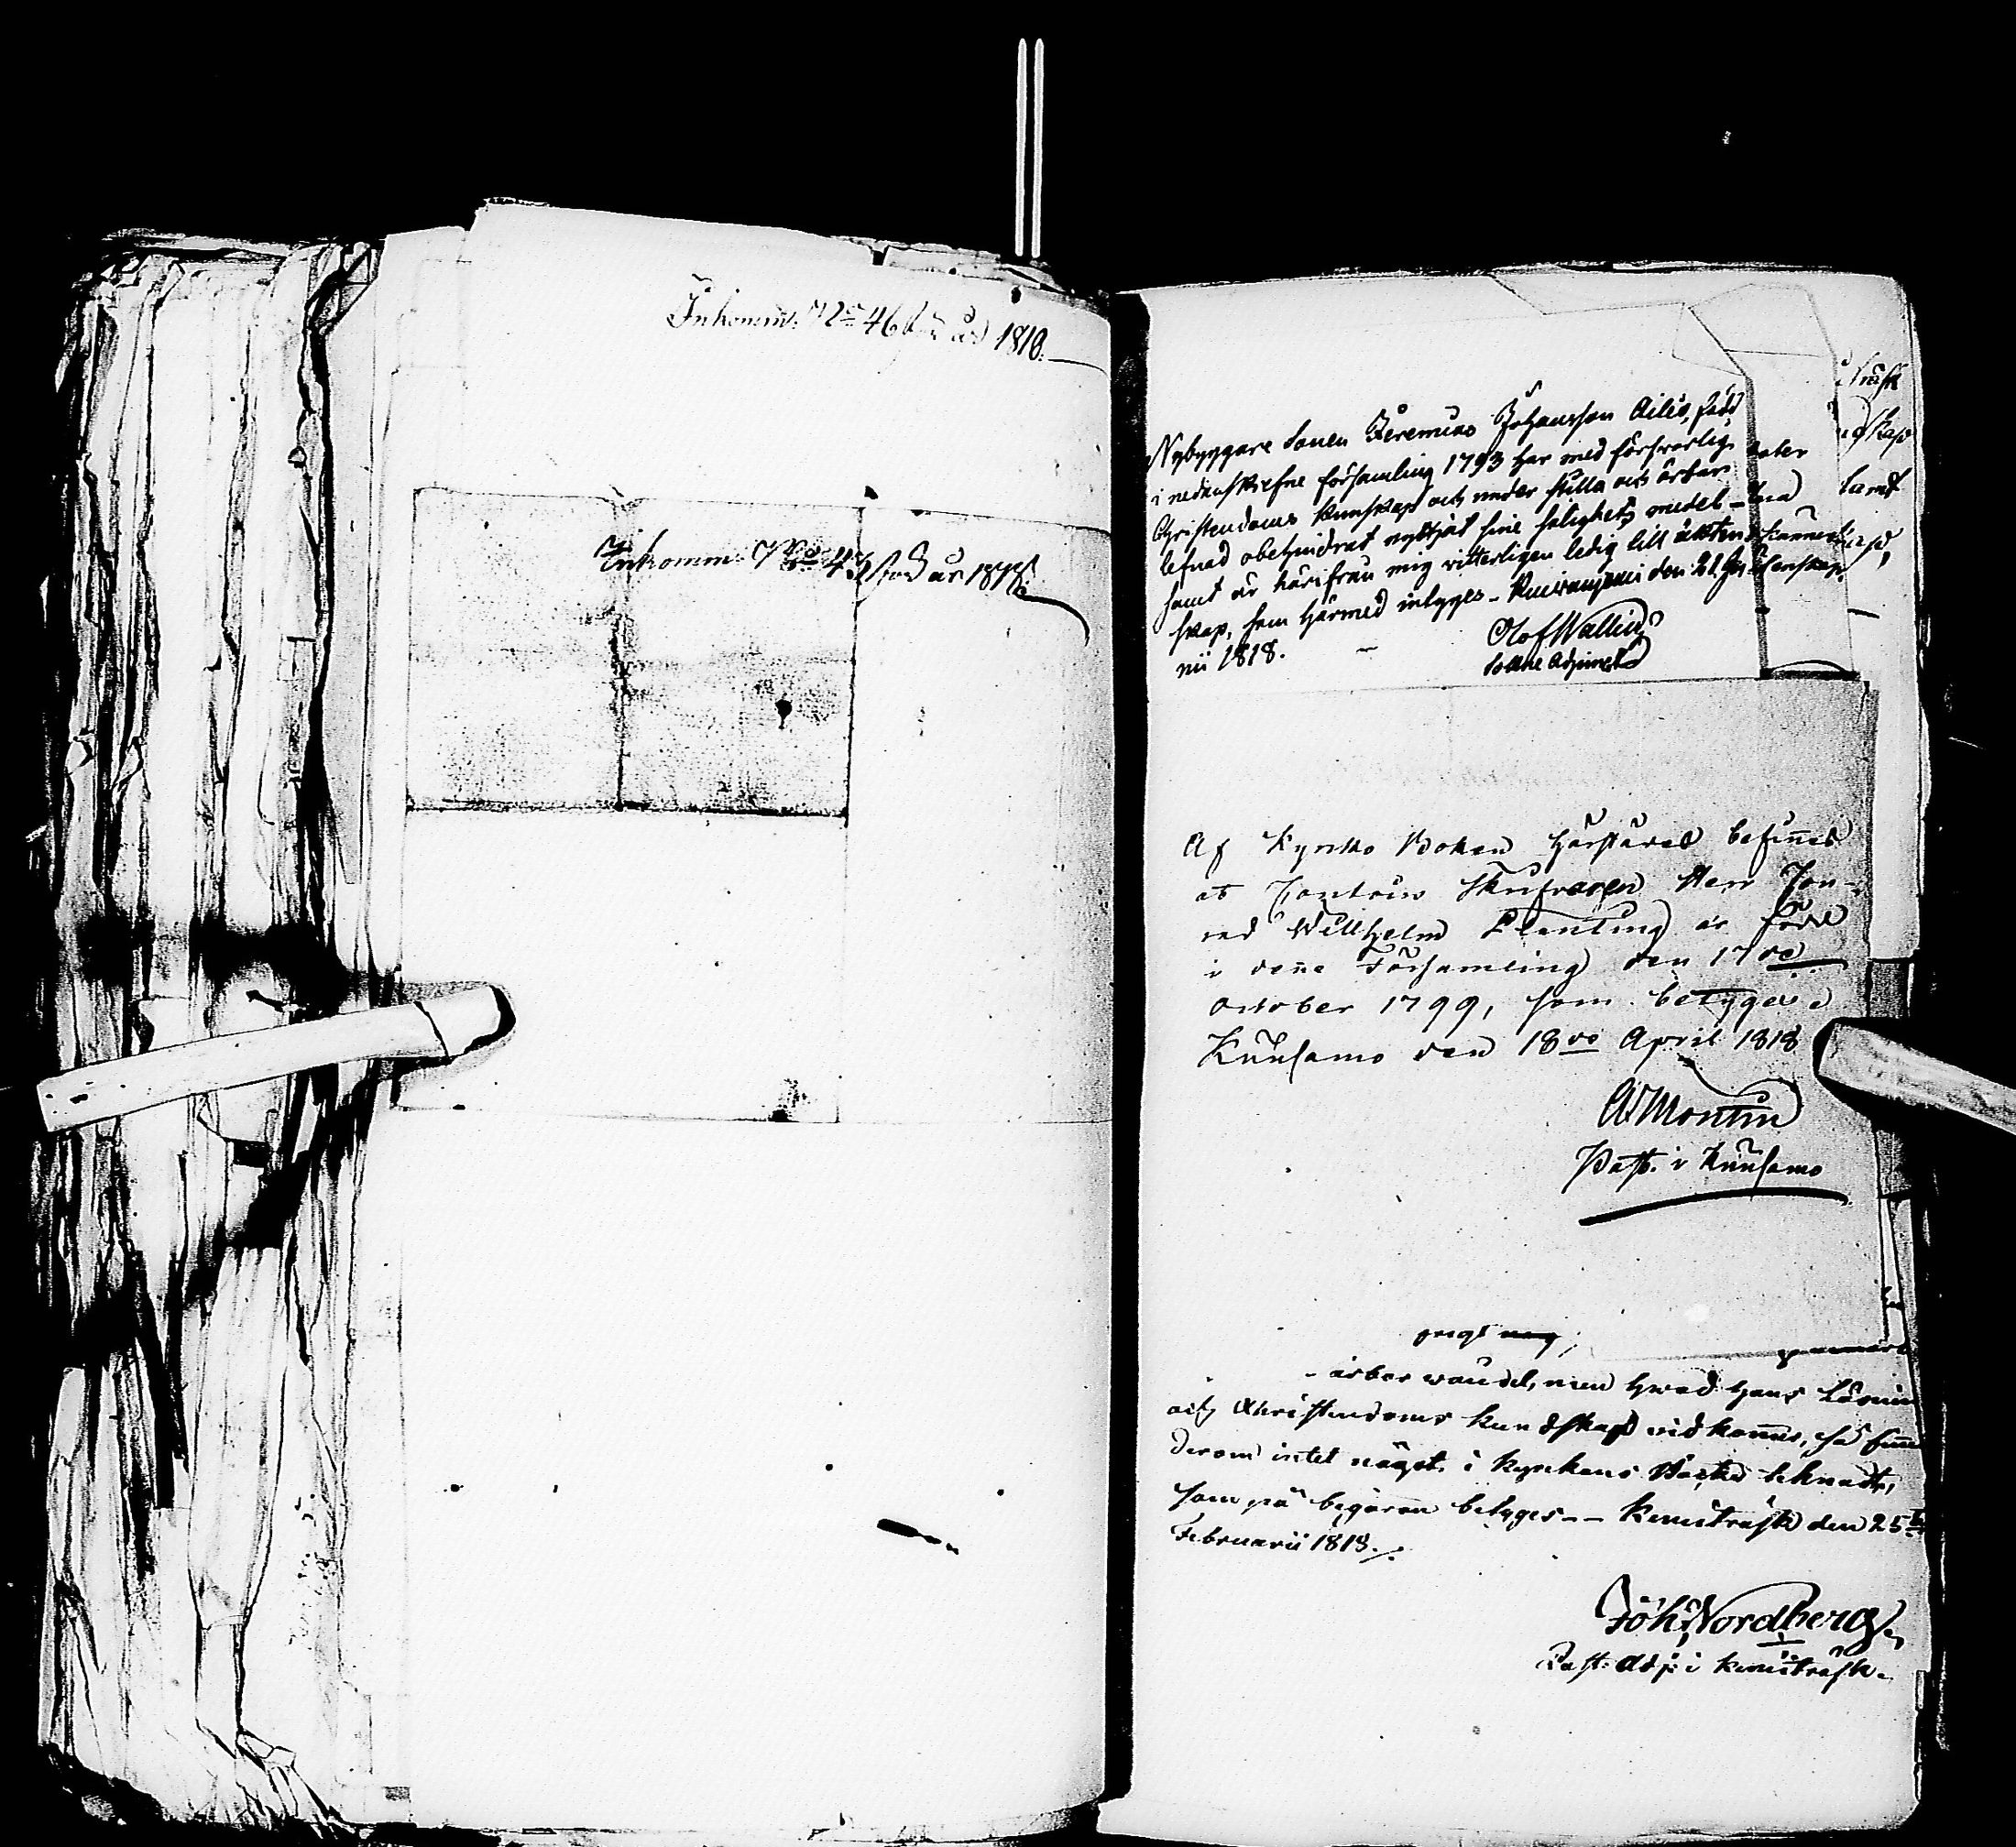 Inkomm: No 46 år 1818.
Inkomm: No 47 år 1818.
Nybyggare Sonen Jeremias Johansson Ailes, född
i nedanskrefne församling 1793 har med försvarlig
Christendoms kunskap och under stilla och ärbar
lefnad obehindrat nyttjat sine salighets medel –
samt är härifrån mig vitterligen ledig till äkten-
skap, som härmed intygas – Kuivaniemi den 21 Ju-
nii 1818.
Olof Wallin
Sockne Adjunct
Af Kyrko Boken härstädes befinnes
at Contoirs Skrifvaren Herr Con-
rad Willhelm Planting är född
i denne Församling den 17de
October 1799, som betygar
Kuusamo den 18de April 1818
Montin
Past. i Kuusamo
ärbar wandel, men hwad hans Läsning
och Christendoms kundskap vidkommer, så finnes
derom intet något i kyrkans Böcker teknadt,
som på begäran betyges – – Kemiträsk den 25
Februarii 1818.
Joh: Nordberg
Past: Adj: i Kemiträsk.